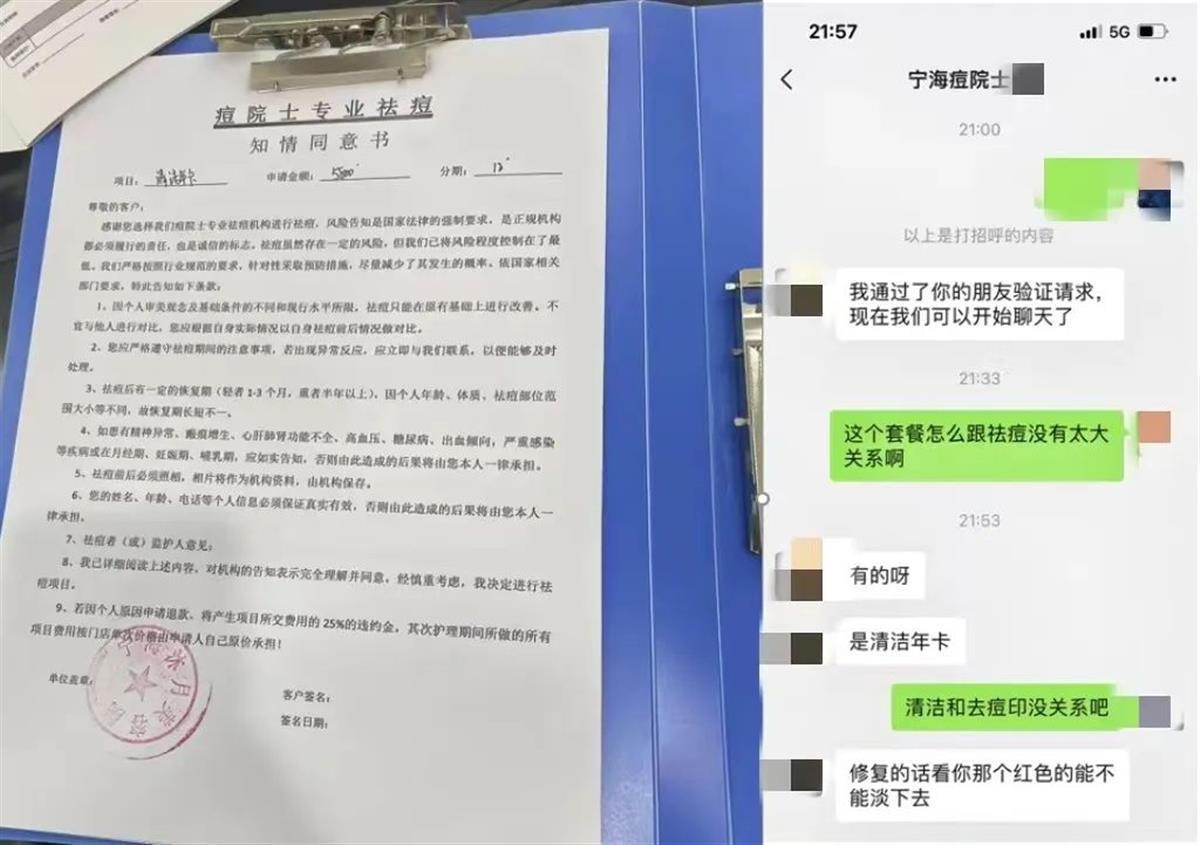 痘院士专业祛痘
知情同意书
项目：清洁年卡 申请金额：5800 分期：12
尊敬的客户：
感谢您选择我们痘院士专业祛痘机构进行祛痘，风险告知是国家法律的强制要求，是正规机构
都必须履行的责任，也是诚信的标志。祛痘虽然存在一定的风险，但我们已将风险程度控制在了最
低。我们严格按照行业规范的要求，针对性采取预防措施，尽量减少了其发生的概率。依国家相关
部门要求，特此告知如下条款：
1、因个人审美观念及基础条件的不同和现行水平所限，祛痘只能在原有基础上进行改善。不
宜与他人进行对比，您应根据自身实际情况以自身祛痘前后情况做对比。
2、您应严格遵守祛痘期间的注意事项，若出现异常反应，应立即与我们联系，以便能够及时
处理。
3、祛痘后有一定的恢复期（轻者1-3个月，重者半年以上）、因个人年龄、体质、祛痘部位范
围大小等不同，故恢复期长短不一。
4、如患有精神异常、瘢痕增生、心肝肺肾功能不全、高血压、糖尿病、出血倾向，严重感染
等疾病或在月经期、妊娠期、哺乳期，应如实告知，否则由此造成的后果将由您本人一律承担。
5、祛痘前后必须照相，相片将作为机构资料，由机构保存。
6、您的姓名、年龄、电话等个人信息必须保证真实有效，否则由此造成的后果将由您本人一
律承担。
7、祛痘者（或）监护人意见：
8、我已详细阅读上述内容、对机构的告知表示完全理解并同意，经慎重考虑，我决定进行祛
痘项目。
9、若因个人原因申请退款、将产生项目所交费用的25%的违约金，其次护理期间所做的所有
项目费用按门店单次价格由申请人自己原价承担！
单位盖章：
客户签名：
签名日期：
21:57 5G
宁海痘院士
21:00
以上是打招呼的内容
我通过了你的朋友验证请求，
现在我们可以开始聊天了
21:33
这个套餐怎么跟祛痘没有太大
关系啊
21:53
有的呀
是清洁年卡
清洁和去痘印没关系吧
修复的话看你那个红色的能不
能淡下去